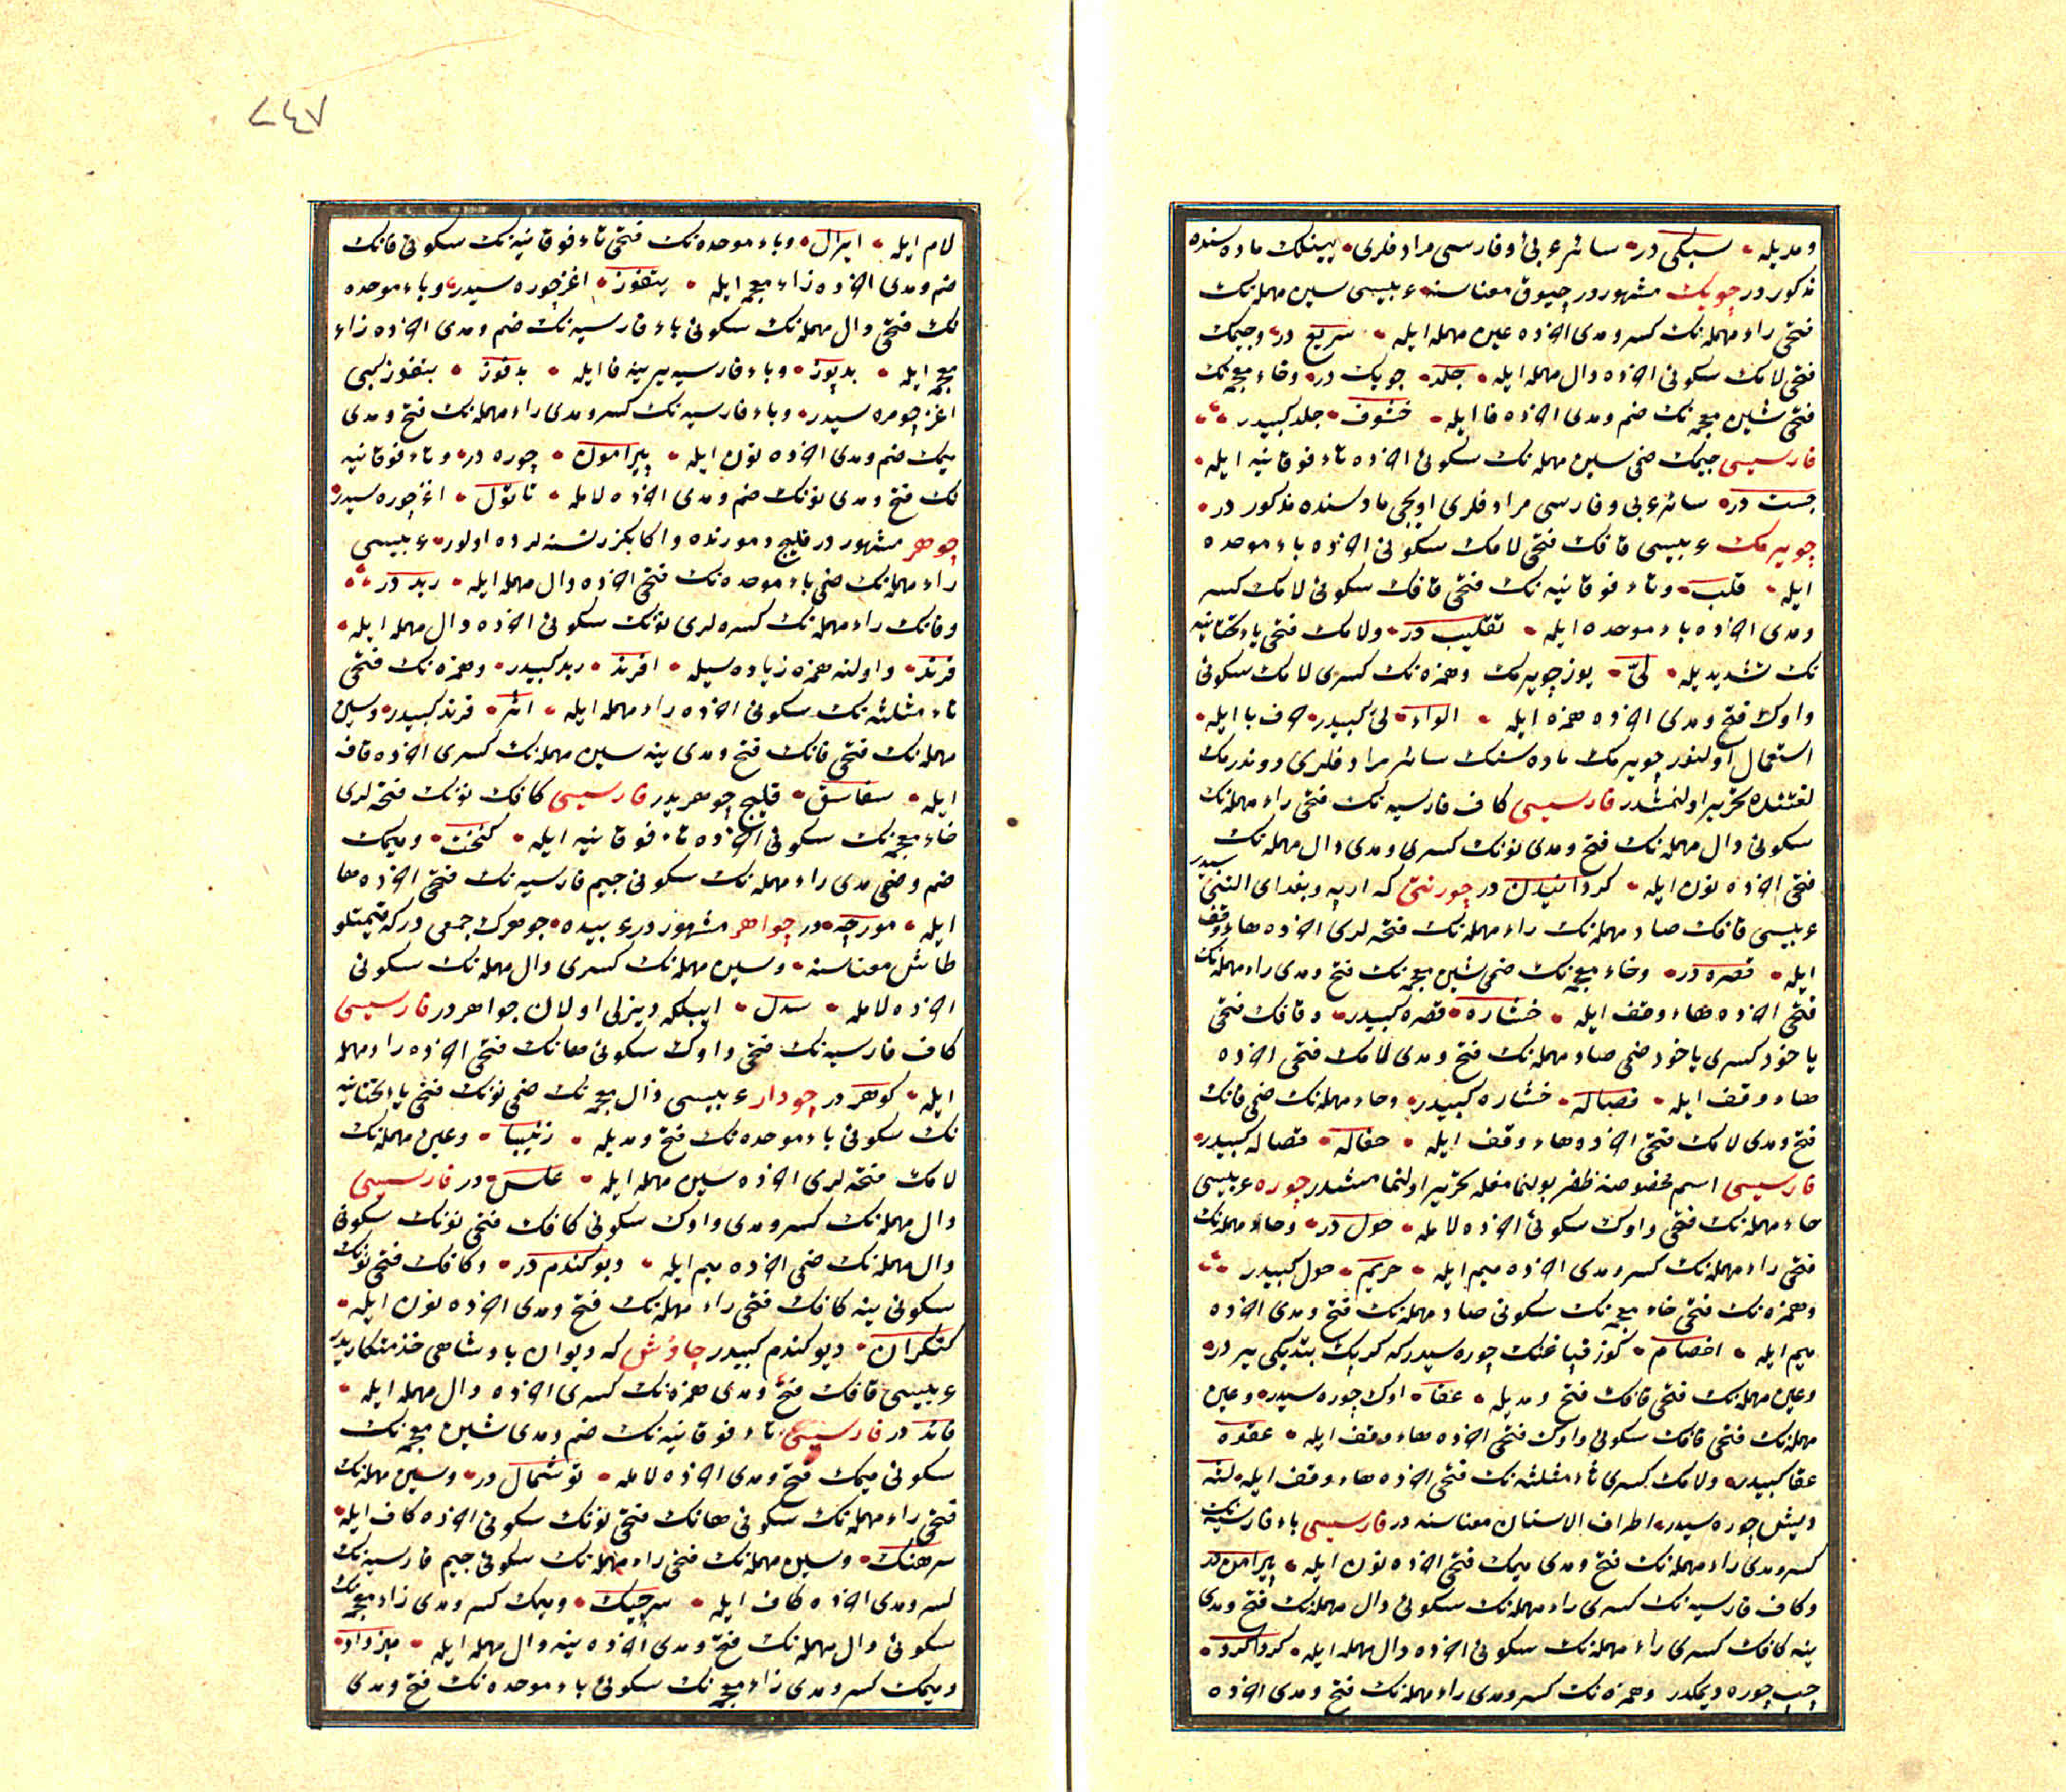 ومديله سبكی در سائر عربی وفارسی مرادفلری بينمك ماده سنده
مذكور در چوبك مشهور در چبوق معناسنه عربيسی سين مهمله نك
فتحی راء مهمله نك كسر ومدی اخرده عين مهمله ايله سريع در وجيمك
فتحی لامك سكونی اخرده دال مهمله ايله جلد چوبك در وخاء معجمه نك
فتحی شين معجمه نك ضم ومدی اخرده فا ايله خشوف جلد كبيدر
فارسيسی جيمك ضمی سين مهمله نك سكونی اخرده تاء فوقانيه ايله
جست در سائر عربی وفارسی مرادفلری اوبجی مادسنده مذكور در
چويرمك عربيسی قافك فتحی لامك سكونی اخرده باء موحده
ايله قلب وتاء فوقانيه نك فتحی قافك سكونی لامك كسر
ومدی اخرده باء موحده ايله تقليب در ولامك فتحی ياء تحتانيه
نك تشديديله لیّ يوز چويرمك وهمزه نك كسری لامك سكونی
واوك فتح ومدی اخرده همزه ايله الواء لیّ كبيدر حرف با ايله
استعمال اولنور چويرمك ماده سنك سائر مرادفلری دوندرمك
لغتنده تحرير اولنمشدر فارسيسی كاف فارسيه نك فتحی راء مهمله نك
سكونی دال مهمله نك فتح ومدی نونك كسری ومدی دال مهمله نك
فتحی اخرده نون ايله كردانيدن در چورنتی كه اربه وبغدای النتيسيدر
عربيسی قافك صاد مهمله نك راء مهمله نك فتحه لری اخرده هاء وقف
ايله قصره در وخاء معجمه نك ضمی شين معجمه نك فتح ومدی راء مهمله نك
فتحی اخرده هاء وقف ايله خشاره قصره كبيدر وقافك فتحی
ياخود كسری ياخود ضمی صاد مهمله نك فتح ومدی لامك فتحی اخرده
هاء وقف ايله قصاله خشاره كبيدر وحاء مهمله نك ضمی فانك
فتح ومدی لامك فتحی اخرده هاء وقف ايله حفاله قصاله كبيدر
فارسيسی اسم مخصوصنه ظفر بولنمامغله تحرير اولنمامشدر چوره عربيسی
حاء مهمله نك فتحی واوك سكونی اخرده لامله حول در وحاء مهمله نك
فتحی راء مهمله نك كسر ومدی اخرده ميم ايله حريم حول كبيدر
وهمزه نك فتحی خاء معجمه نك سكونی صاد مهمله نك فتح ومدی اخرده
ميم ايله اخصام كوز قپاغنك چوره سيدر كه كرپك بتديكی ير در
وعين مهمله نك فتحی قافك فتح ومديله عقا اوك چوره سيدر وعين
مهمله نك فتحی قافك سكونی واوك فتحی اخرده هاء وقف ايله عقوه
عقا كبيدر ولامك كسری ثاء مثلثه نك فتحی اخرده هاء وقف ايله لثه
ديش چوره سيدر اطراف الاسنان معناسنه در فارسيسی باء فارسيه نك
كسر ومدی راء مهمله نك فتح ومدی ميمك فتحی اخرده نون ايله پيرامن در
وكاف فارسيه نك كسری راء مهمله نك سكونی دال مهمله نك فتح ومدی
ينه كافك كسری راء مهمله نك سكونی اخرده دال مهمله ايله كرداكرد
چپ چوره ديمكدر وهمزه نك كسر ومدی راء مهمله نك فتح ومدی اخرده
٧٤٧
لام ايله ايرال وباء موحده نك فتحی تاء فوقانيه نك سكونی فانك
ضم ومدی اخرده زاء معجمه ايله بتفوز اغز چوره سيدر وباء موحده
نك فتحی دال مهمله نك سكونی باء فارسيه نك ضم ومدی اخرده زاء
معجمه ايله بدپوز وباء فارسيه يرينه فا ايله بدفوز بتفوز كبی
اغز چومره سيدر وباء فارسيه نك كسر ومدی راء مهمله نك فتح ومدی
ميمك ضم ومدی اخرده نون ايله پيرامون چوره در وتاء فوقانيه
نك فتح ومدی نونك ضم ومدی اخرده لامله تانول اغز چوره سيدر
جوهر مشهور در قليج ودمورنده واكا بكزر نسنه لرده اولور عربيسی
راء مهمله نك ضمی باء موحده نك فتحی اخرده دال مهمله ايله ربد در
وفانك راء مهمله نك كسره لری نونك سكونی اخرده دال مهمله ايله
فرند واولنه همزه زياده سيله افرند ربد كبيدر وهمزه نك فتحی
ثاء مثلثه نك سكونی اخرده راء مهمله ايله اثر فرند كبيدر وسين
مهمله نك فتحی فانك فتح ومدی ينه سين مهمله نك كسری اخرده قاف
ايله سفاسق قليج جوهريدر فارسيسی كافك نونك فتحه لری
خاء معجمه نك سكونی اخرده تاء فوقانيه ايله كنخت وميمك
ضم وضمی مدی راء مهمله نك سكونی جيم فارسيه نك فتحی اخرده ها
ايله مورچه در جواهر مشهور در عربيده جوهرك جمعی در كه قيمتلو
طاش معناسنه وسين مهمله نك كسری دال مهمله نك سكونی
اخرده لامله سدل ايپلكه ديزلی اولان جواهر در فارسيسی
كاف فارسيه نك فتحی واوك سكونی هانك فتحی اخرده راء مهمله
ايله كوهر در چودار عربيسی ذال معجمه نك ضمی نونك فتحی ياء تحتانيه
نك سكونی باء موحده نك فتح ومديله ذنيبا وعين مهمله نك
لامك فتحه لری اخرده سين مهمله ايله علس در فارسيسی
دال مهمله نك كسر ومدی واوك سكونی كافك فتحی نونك سكونی
دال مهمله نك ضمی اخرده ميم ايله ديوكندم در وكافك فتحی نونك
سكونی ينه كافك فتحی راء مهمله نك فتح ومدی اخرده نون ايله
كنكران ديوكندم كبيدر چاوش كه ديوان پادشاهی خدمتكاريدر
عربيسی قافك فتح ومدی همزه نك كسری اخرده دال مهمله ايله
قائد در فارسيسی تاء فوقانيه نك ضم ومدی شين معجمه نك
سكونی ميمك فتح ومدی اخرده لامله توشمال در وسين مهمله نك
فتحی راء مهمله نك سكونی هانك فتحی نونك سكونی اخرده كاف ايله
سرهنك وسين مهمله نك فتحی راء مهمله نك سكونی جيم فارسيه نك
كسر ومدی اخرده كاف ايله سرچيك وميمك كسر ومدی زاء معجمه نك
سكونی دال مهمله نك فتح ومدی اخرده ينه دال مهمله ايله ميزداد
وميمك كسر ومدی زاء معجمه نك سكونی باء موحده نك فتح ومدی